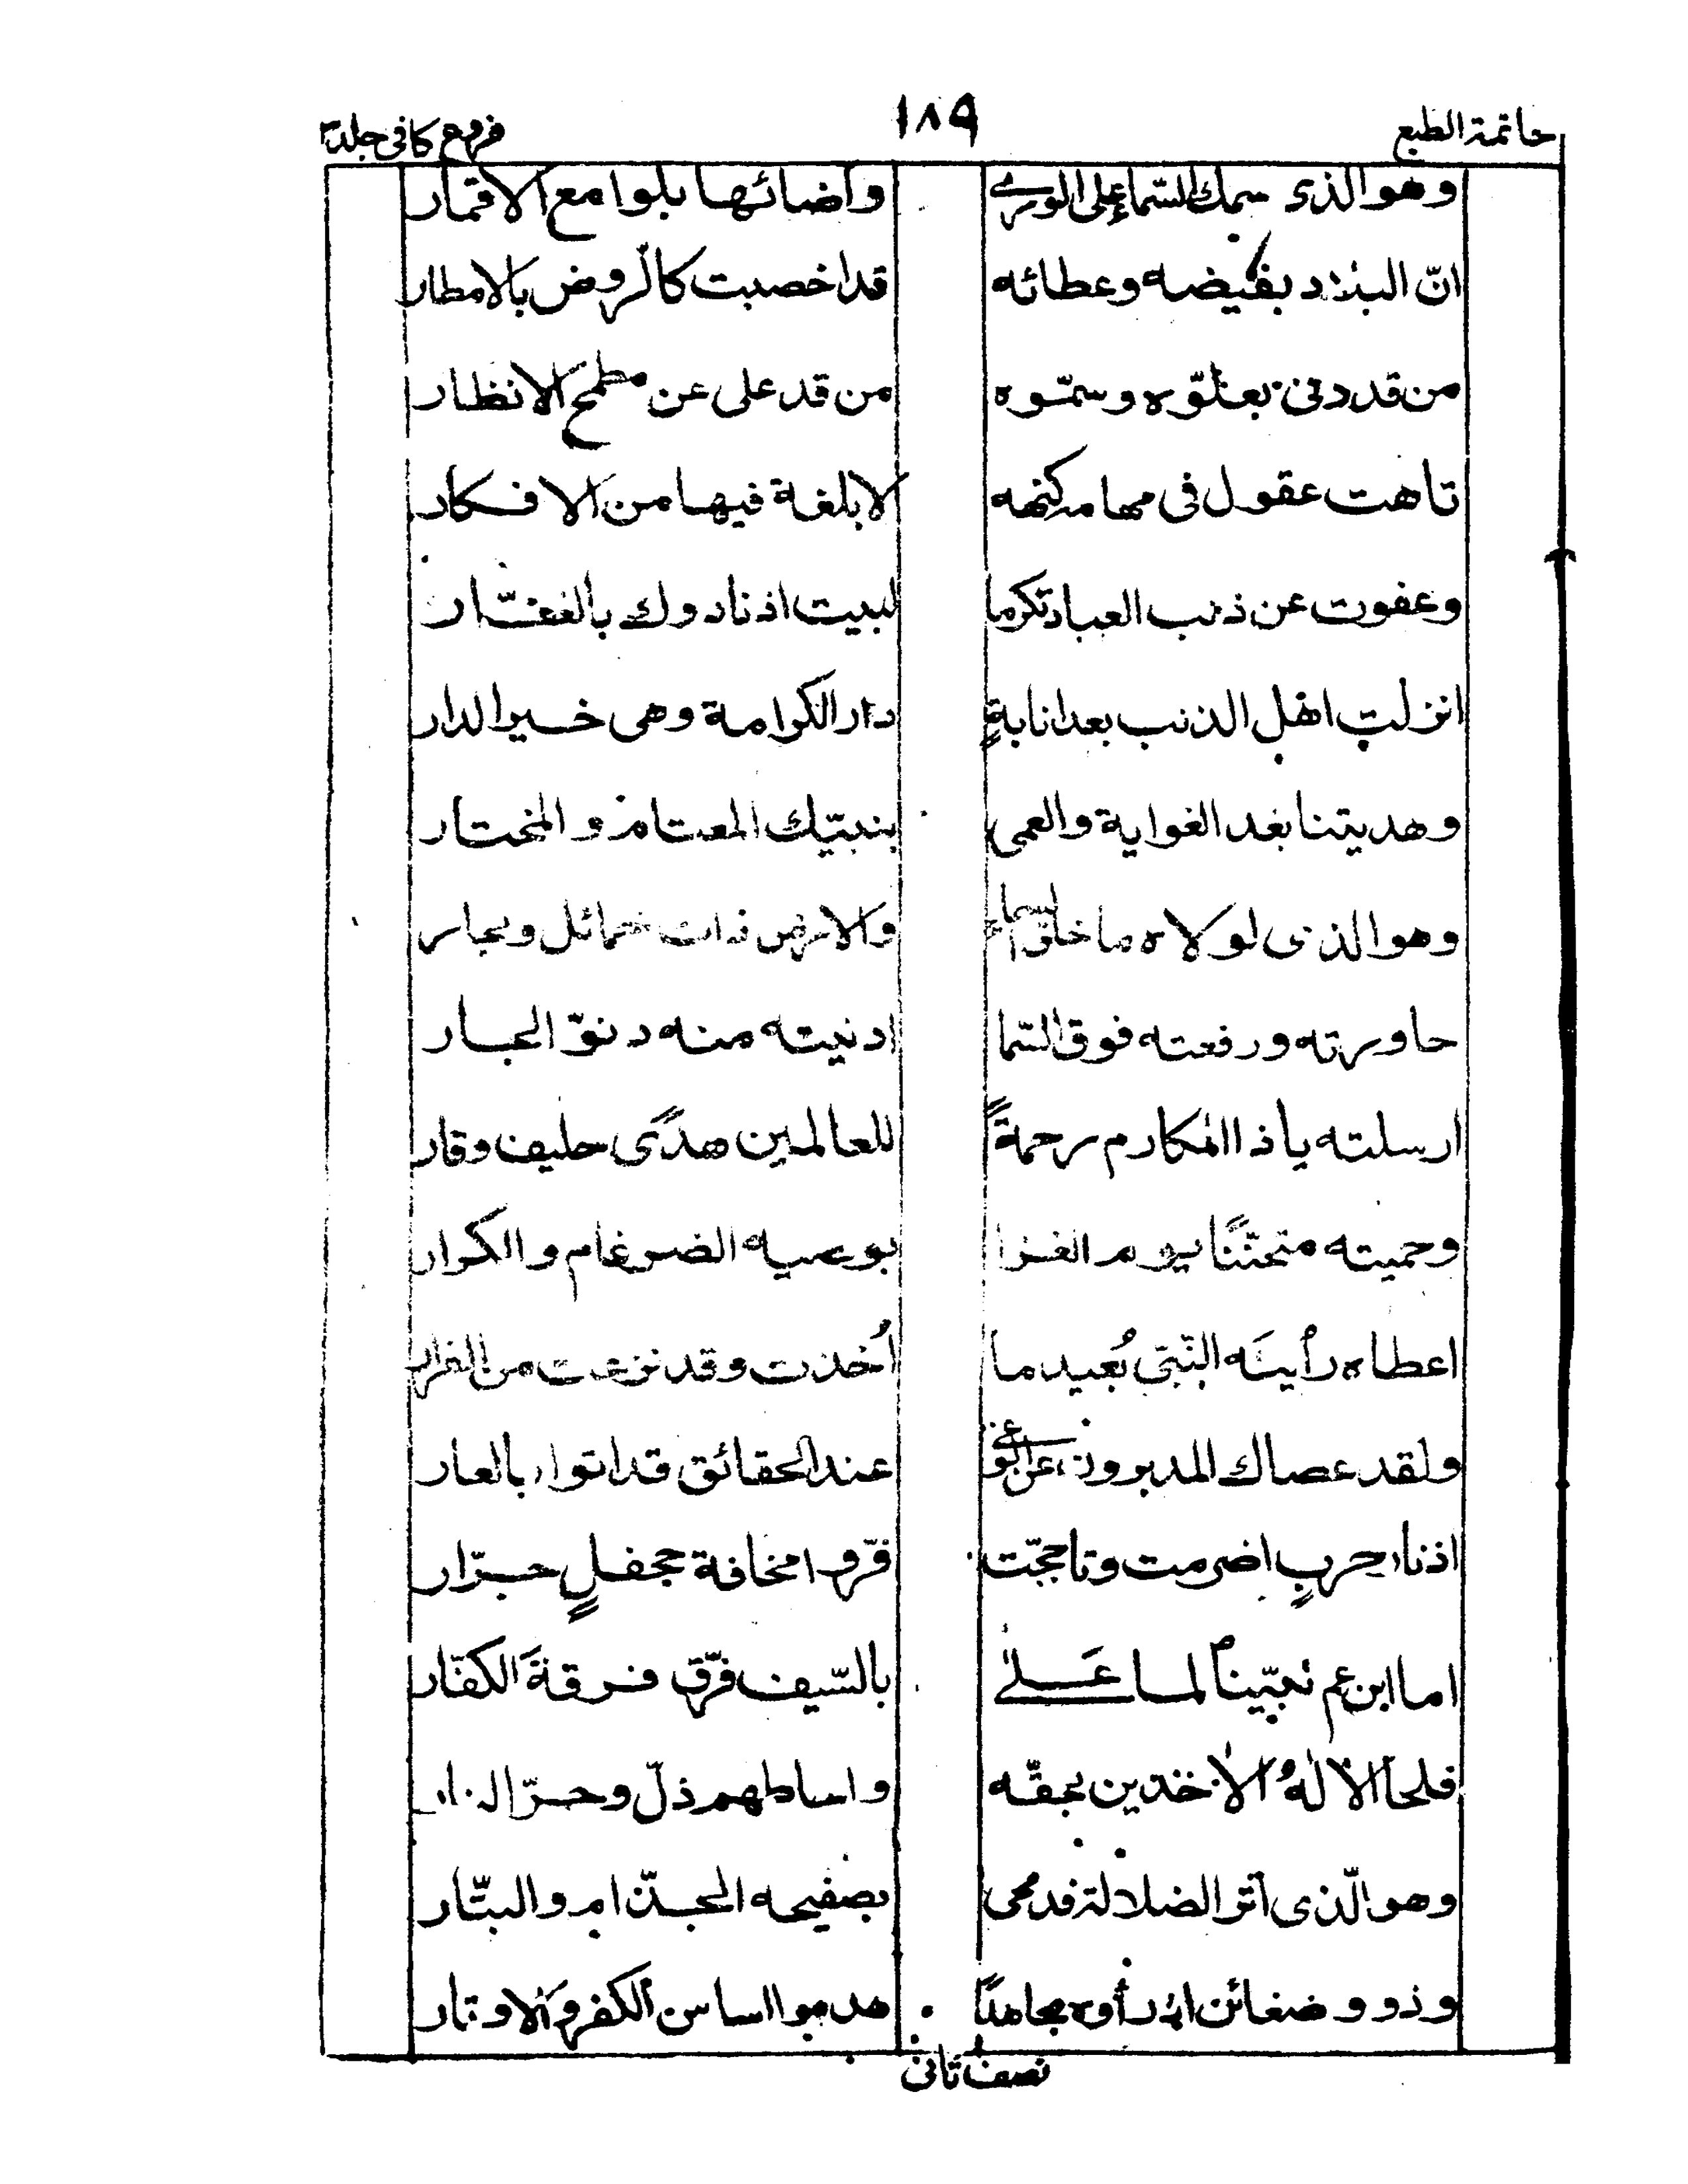 خاتمة الطبع ١٨٩ فروع كافي جلد٣
وهو الذى سمك السّماء على الورى واضائها بلوامع الاقمار
انّ البلاد بفيضه وعطائه قد اخصبت كالروض بالامطار
من قد دنى بعلوّه وسموّه من قد على عن مطمح الانظار
تاهت عقول فى مهامه كنهه لا بلغة فيها من الافكار
وعفوت عن ذنب العباد تكرما لبيت اذ نادوك بالغفّار
انزلت اهل الذنب بعد انابةٍ دار الكرامة وهى خير الدار
وهديتنا بعد الغواية والعمى بنبيّك المعتام والمختار
وهو الذى لولاه ما خلق السماء والارض ذات خمائل وبحار
حاورته ورفعته فوق السّما ادنيته منه دنوّ الجار
ارسلته ياذا المكارم رحمةً للعالمين هدًى حليف وقار
وحميته متحنّنًا يوم الغزا بوصيه الضرغام والكرار
اعطاه رأيته النّبى بُعيد ما اُخذت وقد نزعت من الفرار
ولقد عصاك المدبرون عن الوغى عند الحقائق قد اتوا بالعار
اذ نار حربٍ اضرمت وتاججّت فرّوا مخافة جحفلٍ جرّار
اما ابن عم نبيّنا لما علے بالسّيف فرّق فرقةَ الكفّار
فلحا الالٰهُ الاخذين بحقّه واساطهم ذلّ وحرّ
وهو الّذى اثر الضلالة قد محى بصفيحه الجذّام والبتّار
وذوو ضغائن اذ رأوه مجاهدًا هدموا اساس الكفر والاوتار
نصف ثانى